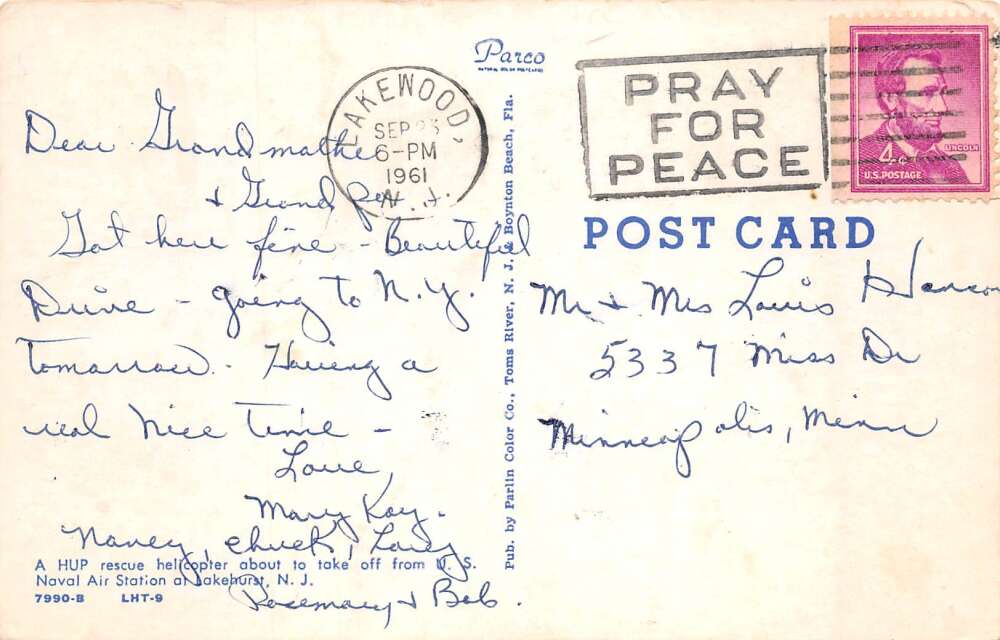 Parco
LAKEWOOD,
SEP
6-PM
1961
N. J.
PRAY
FOR
PEACE
4¢
LINCOLN
U.S. POSTAGE
POST CARD
Dear Grandmother
+ Grand pa
Got here fine - Beautiful
Drive - going to N.Y.
tomorrow. - Having a
real nice time -
Love,
Mary Kay.
Nancy, Chuck, Larry
Rosemary + Bob.
A HUP rescue helicopter about to take off from U. S.
Naval Air Station at Lakehurst, N. J.
7990-B LHT-9
Pub. by Parlin Color Co., Toms River, N. J. & Boynton Beach, Fla.
Mr + Mrs Louis Hanson
5337 Miss Dr
Minneapolis, Minn